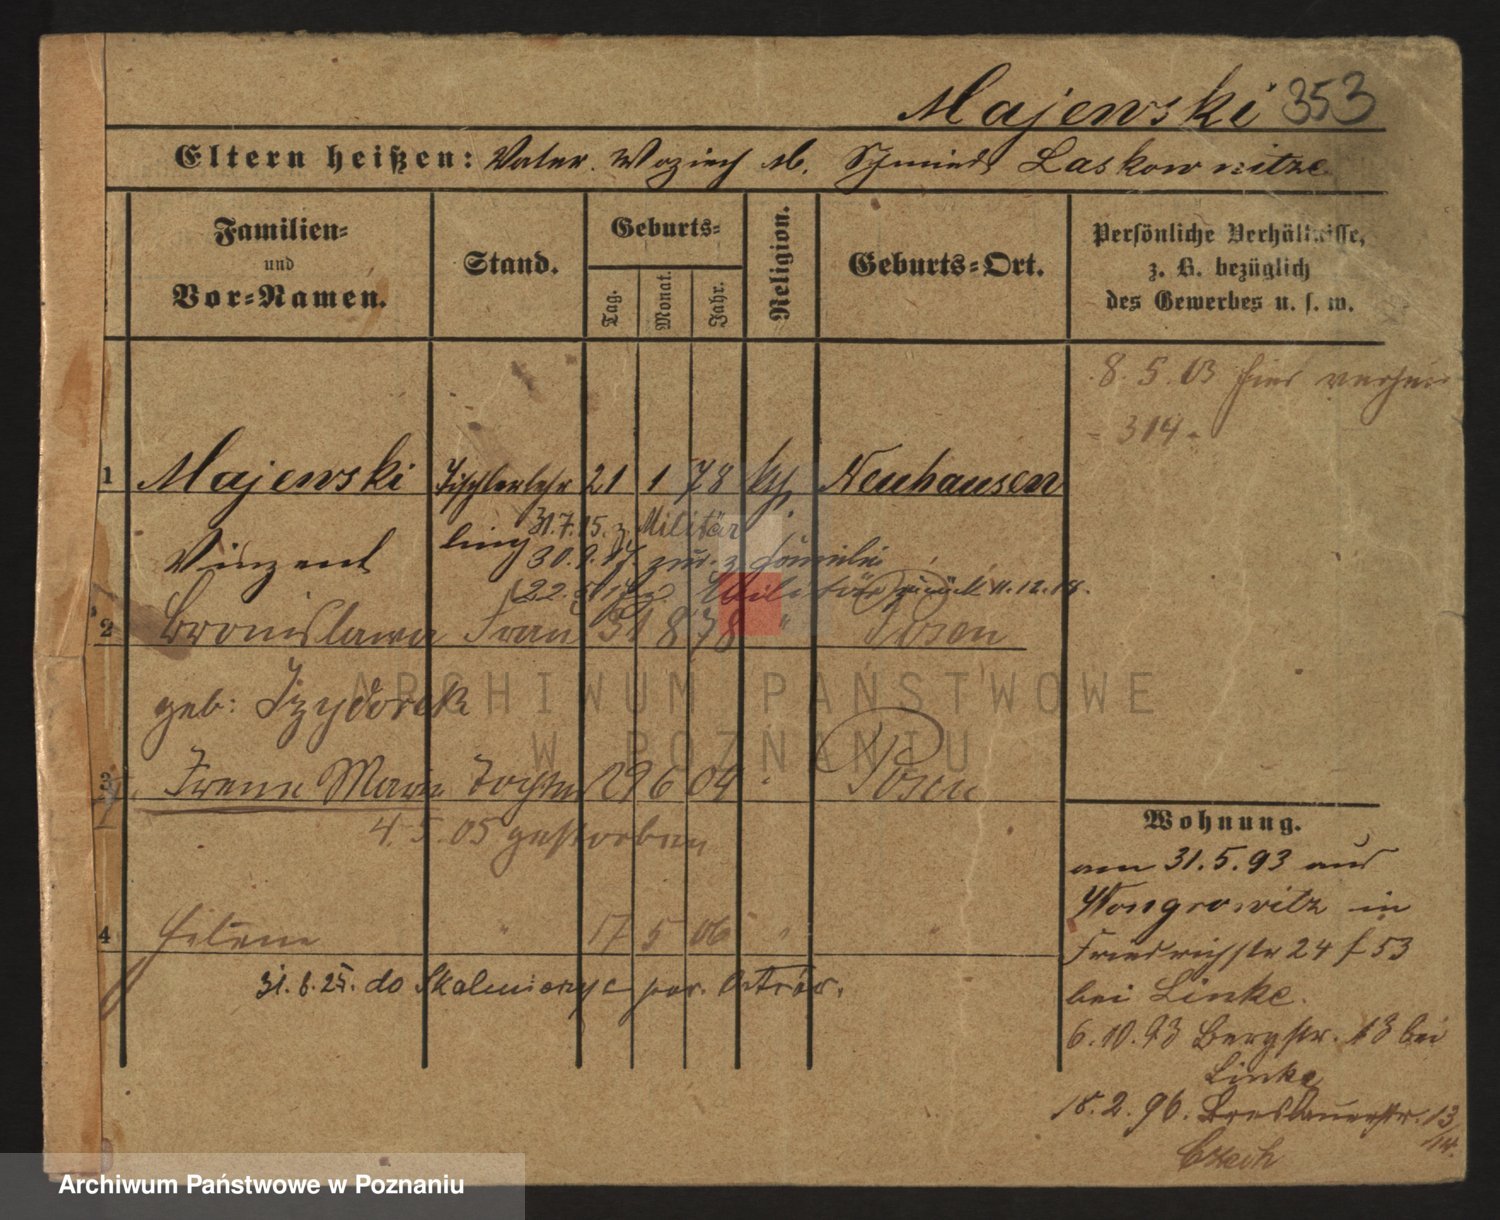 Majewski 353
Eltern heißen: Vater. Woziech M. Schmied Laskownitze
Familien-
und
Vor-Namen.
Stand.
Geburts-
Tag.
Monat.
Jahr.
Religion.
Geburts-Ort.
Persönliche Verhältnisse,
z. B. bezüglich
des Gewerbes u. s. w.
8. 5. 03 hier verhei
- 314 -
1 Majewski Tischlerlehr 21 1 78 kth. Neuhausen
Vinzent ling 31.7.15. z. Militär
30.9.17. zur. z. Familie
22.5.18 z. Militär zurück 11.12.18.
2 Bronislawa Frau 31 8 78 " Posen
geb: Izydorek
3 Irene Marie Tochter 29 6 04 " Posen
4. 5. 05 gestorben
4 Helene " 17 5 06 " "
31. 8. 25. do Skalmierzyc pow. Ostrów.
Wohnung.
am 31. 5. 93 aus
Wongrowitz in
Friedrichstr 24 f 53
bei Linke.
6. 10. 93 Bergstr. 13 bei
Linke
18. 2. 96. Breslauerstr. 13/14.
ARCHIWUM PAŃSTWOWE
W POZNANIU
Archiwum Państwowe w Poznaniu